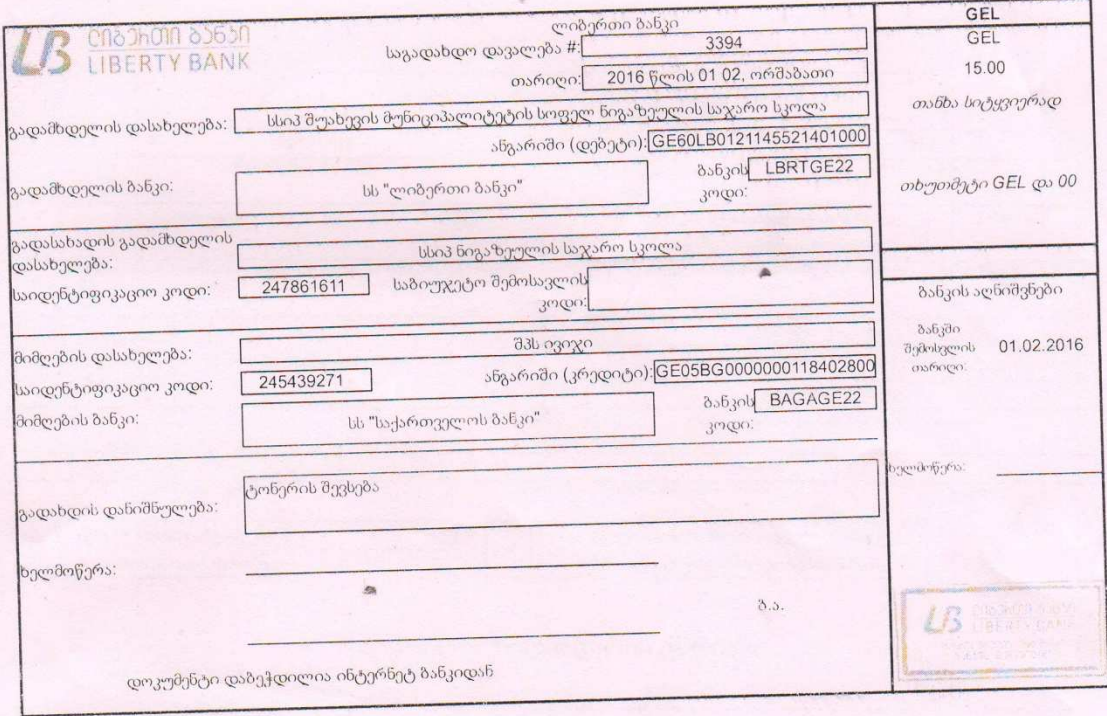 ლიბერთი ბანკი
LIBERTY BANK
ლიბერთი ბანკი
საგადახდო დავალება #: 3394
თარიღი: 2016 წლის 01 02, ორშაბათი
გადამხდელის დასახელება: სსიპ შუახევის მუნიციპალიტეტის სოფელ ნიგაზეულის საჯარო სკოლა
ანგარიში (დებეტი): GE60LB0121145521401000
გადამხდელის ბანკი: სს "ლიბერთი ბანკი" ბანკის კოდი: LBRTGE22
გადასახადის გადამხდელის დასახელება: სსიპ ნიგაზეულის საჯარო სკოლა
საიდენტიფიკაციო კოდი: 247861611 საბიუჯეტო შემოსავლის კოდი:
მიმღების დასახელება: შპს ივიჯი
საიდენტიფიკაციო კოდი: 245439271 ანგარიში (კრედიტი): GE05BG0000000118402800
მიმღების ბანკი: სს "საქართველოს ბანკი" ბანკის კოდი: BAGAGE22
გადახდის დანიშნულება: ტონერის შევსება
ხელმოწერა:
ბ.ა.
დოკუმენტი დაბეჭდილია ინტერნეტ ბანკიდან
GEL
GEL
15.00
თანხა სიტყვიერად
თხუთმეტი GEL და 00
ბანკის აღნიშვნები
ბანკში შემოსვლის თარიღი: 01.02.2016
ხელმოწერა:
LIBERTY BANK